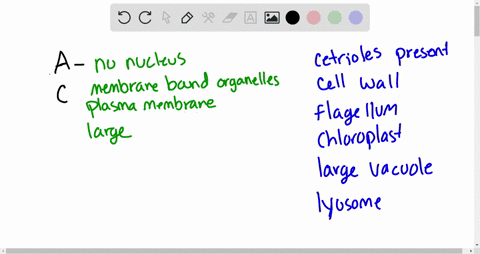 A - no nucleus
C membrane bound organelles
plasma membrane
large
cetrioles present
cell wall
flagellum
chloroplast
large vacuole
lyosome